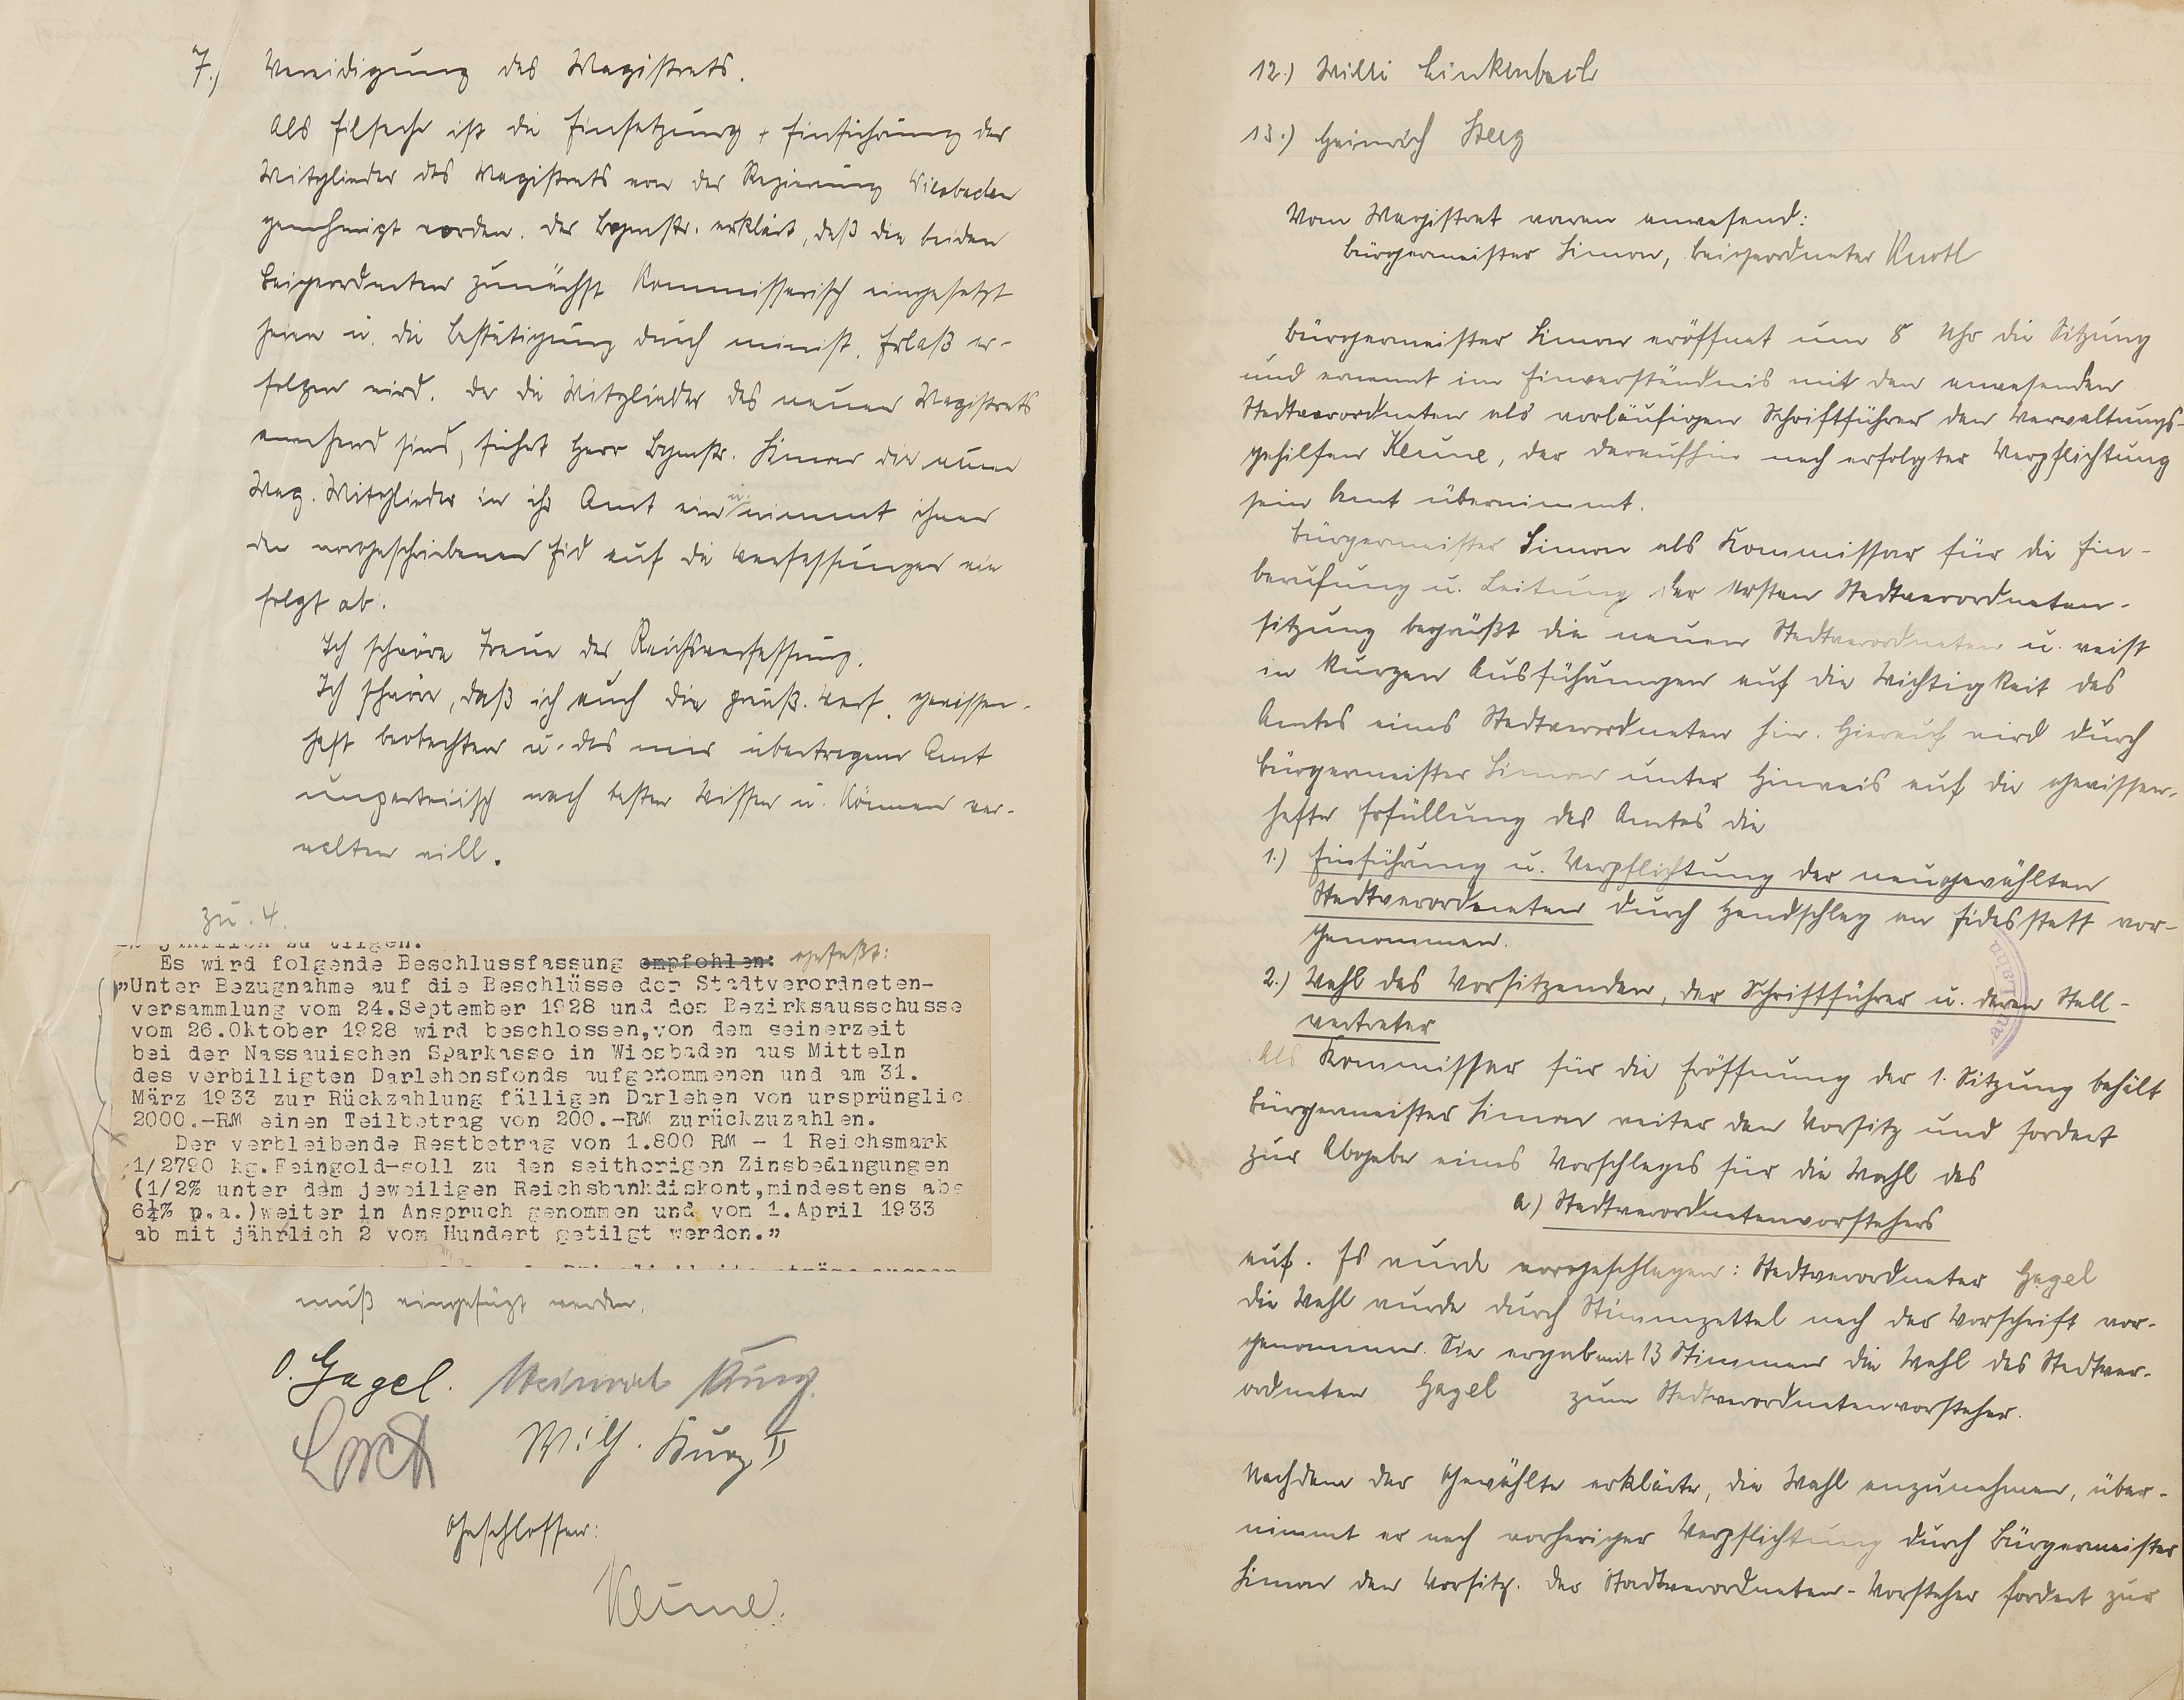 7.) Vereidigung des Magistrats.
Als Eilsache ist die Einsetzung + Einführung der
Mitglieder des Magistrats von der Regierung Wiesbaden
genehmigt worden. Der Bgmstr. erklärt, daß die beiden
Beigeordneten zunächst kommissarisch eingesetzt
seien u. die Bestätigung durch minist. Erlaß er-
folgen wird. Da die Mitglieder des neuen Magistrats
anwesend sind, führt Herr Bgmstr. Simon die neuen
Mag. Mitglieder in ihr Amt ein u. nimmt ihnen
den vorgeschriebenen Eid auf die Verfassungen wie
folgt ab:
Ich schwöre Treue der Reichsverfassung.
Ich schwöre, daß ich auch die preuß. Verf. gewissen-
haft beobachten u. das mir übertragene Amt
unparteiisch nach bestem Wissen u. Können ver-
walten will.
zu. 4.
Es wird folgende Beschlussfassung empfohlen: gefaßt:
„Unter Bezugnahme auf die Beschlüsse der Stadtverordneten-
versammlung vom 24.September 1928 und des Bezirksausschusse
vom 26.Oktober 1928 wird beschlossen,von dem seinerzeit
bei der Nassauischen Sparkasse in Wiesbaden aus Mitteln
des verbilligten Darlehensfonds aufgenommenen und am 31.
März 1933 zur Rückzahlung fälligen Darlehen von ursprünglic
2000.-RM einen Teilbetrag von 200.-RM zurückzuzahlen.
Der verbleibende Restbetrag von 1.800 RM - 1 Reichsmark
1/2790 kg.Feingold-soll zu den seitherigen Zinsbedingungen
(1/2% unter dem jeweiligen Reichsbankdiskont,mindestens abe
6¼% p.a.)weiter in Anspruch genommen und vom 1.April 1933
ab mit jährlich 2 vom Hundert getilgt werden.”
muß eingefügt werden.
O. Gagel. Heinrich Kurz.
Wilh. Kurz II
Geschlossen:
Keune.
12.) Willi Linkenbach
13.) Heinrich Steeg
Vom Magistrat waren anwesend:
Bürgermeister Simon, Beigeordneter Knotl
Bürgermeister Simon eröffnet um 8 Uhr die Sitzung
und ernennt im Einverständnis mit den anwesenden
Stadtverordneten als vorläufigen Schriftführer den Verwaltungs-
gehilfen Keune, der daraufhin nach erfolgter Verpflichtung
sein Amt übernimmt.
Bürgermeister Simon als Kommissar für die Ein-
berufung u. Leitung der ersten Stadtverordneten-
sitzung begrüßt die neuen Stadtverordneten u. weist
in kurzen Ausführungen auf die Wichtigkeit des
Amtes eines Stadtverordneten hin. Hierauf wird durch
Bürgermeister Simon unter Hinweis auf die gewissen-
hafte Erfüllung des Amtes die
1.) Einführung u. Verpflichtung der neugewählten
Stadtverordneten durch Handschlag an Eidesstatt vor-
genommen.
2.) Wahl des Vorsitzenden, der Schriftführer u. deren Stell-
vertreter
Als Kommissar für die Eröffnung der 1. Sitzung behält
Bürgermeister Simon weiter den Vorsitz und fordert
zur Abgabe eines Vorschlages für die Wahl des
a) Stadtverordnetenvorstehers
auf. Es wurde vorgeschlagen: Stadtverordneter Gagel
Die Wahl wurde durch Stimmzettel nach der Vorschrift vor-
genommen. Sie ergab mit 13 Stimmen die Wahl des Stadtver-
ordneten Gagel zum Stadtverordnetenvorsteher.
Nachdem der Gewählte erklärte, die Wahl anzunehmen, über-
nimmt er nach vorheriger Verpflichtung durch Bürgermeister
Simon den Vorsitz. Der Stadtverordneten-Vorsteher fordert zur